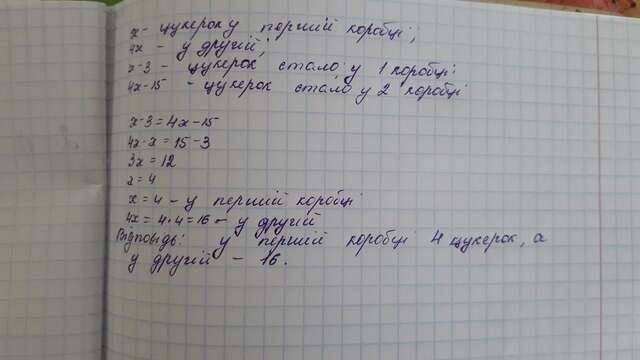 x - цукерок у першій коробці;
4x - у другій;
x-3 - цукерок стало у 1 коробці.
4x-15 - цукерок стало у 2 коробці
x-3=4x-15
4x-x=15-3
3x=12
x=4
x=4 - у першій коробці
4x=4·4=16 - у другій
Відповідь: у першій коробці 4 цукерок, а
у другій - 16.